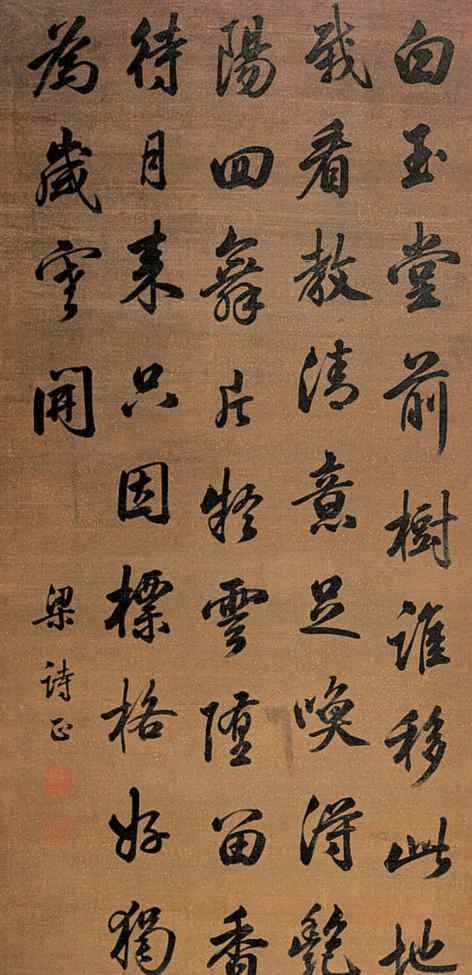 白玉堂前樹誰移此地
栽看教清意足喚得艷
陽回舞片疑雲墮留香
待月来只因標格好獨
為歲寒開
梁詩正